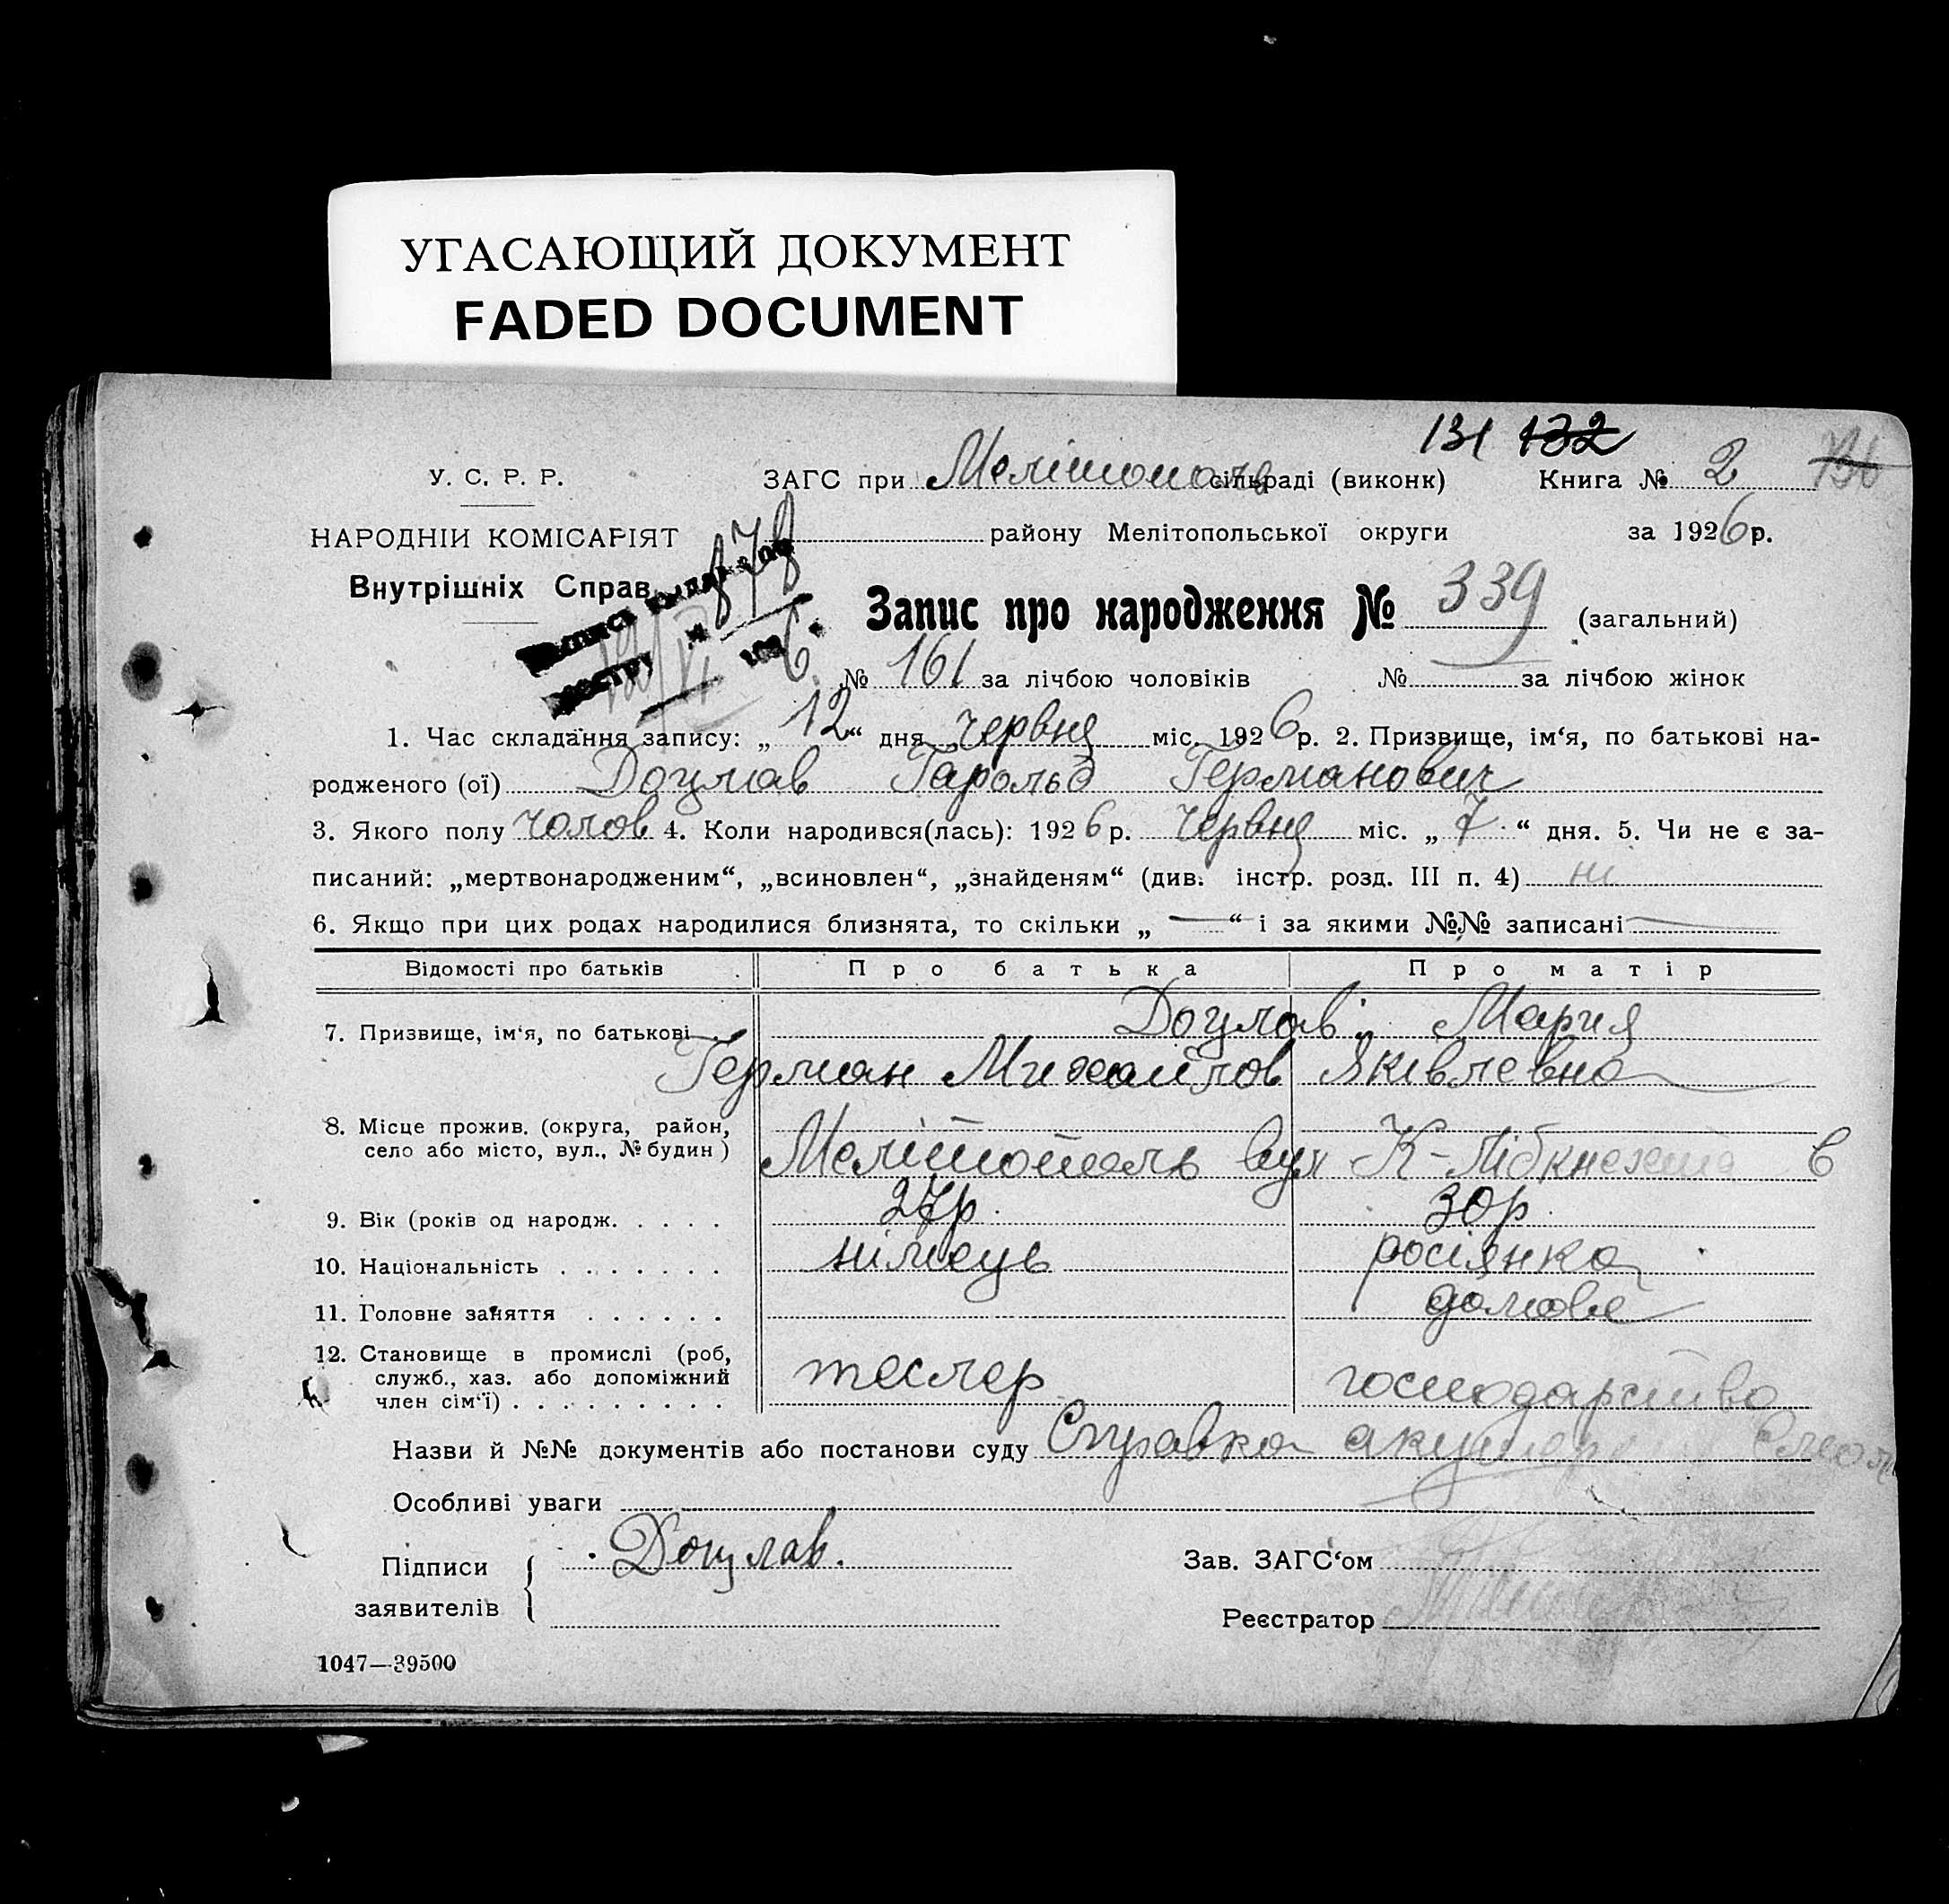 УГАСАЮЩИЙ ДОКУМЕНТ
FADED DOCUMENT
131 132
У. С. Р. Р.
ЗАГС при Мелітополь сільраді (виконк) Книга № 2
НАРОДНІЙ КОМІСАРІЯТ
району Мелітопольської округи за 1926 р.
Внутрішніх Справ
878
Запис про народження № 339 (загальний)
№ 161 за лічбою чоловіків № за лічбою жінок
1. Час складання запису: „ 12 “ дня „ червня міс. 1926 р. 2. Призвище, ім‘я, по батькові на-
родженого (ої) Доулав Гарольд Германович
3. Якого полу чолов 4. Коли народився(лась): 1926 р. червня міс. „ 7 “ дня. 5. Чи не є за-
писаний: „мертвонародженим“, „всиновлен“, „знайденям“ (див. інстр. розд. III п. 4) ні
6. Якщо при цих родах народилися близнята, то скільки „ — “ і за якими №№ записані —
Відомості про батьків Про батька Про матір
7. Призвище, ім‘я, по батькові Доулав Мария
Герман Михайлов Яківлевна
8. Місце прожив. (округа, район,
село або місто, вул., № будин) Мелітополь вул К-Лібкнехта 6
9. Вік (років од народж. . . . . 27р 30р
10. Національність . . . . . . . німець росіянка
11. Головне заняття . . . . . . домове
12. Становище в промислі (роб,
служб., хаз. або допоміжний
член сім‘ї) . . . . . . . . . тесляр господарство
Назви й №№ документів або постанови суду Справка акушерки
Особливі уваги
Підписи
заявителів
Доулав.
Зав. ЗАГС‘ом
Реєстратор
1047—39500